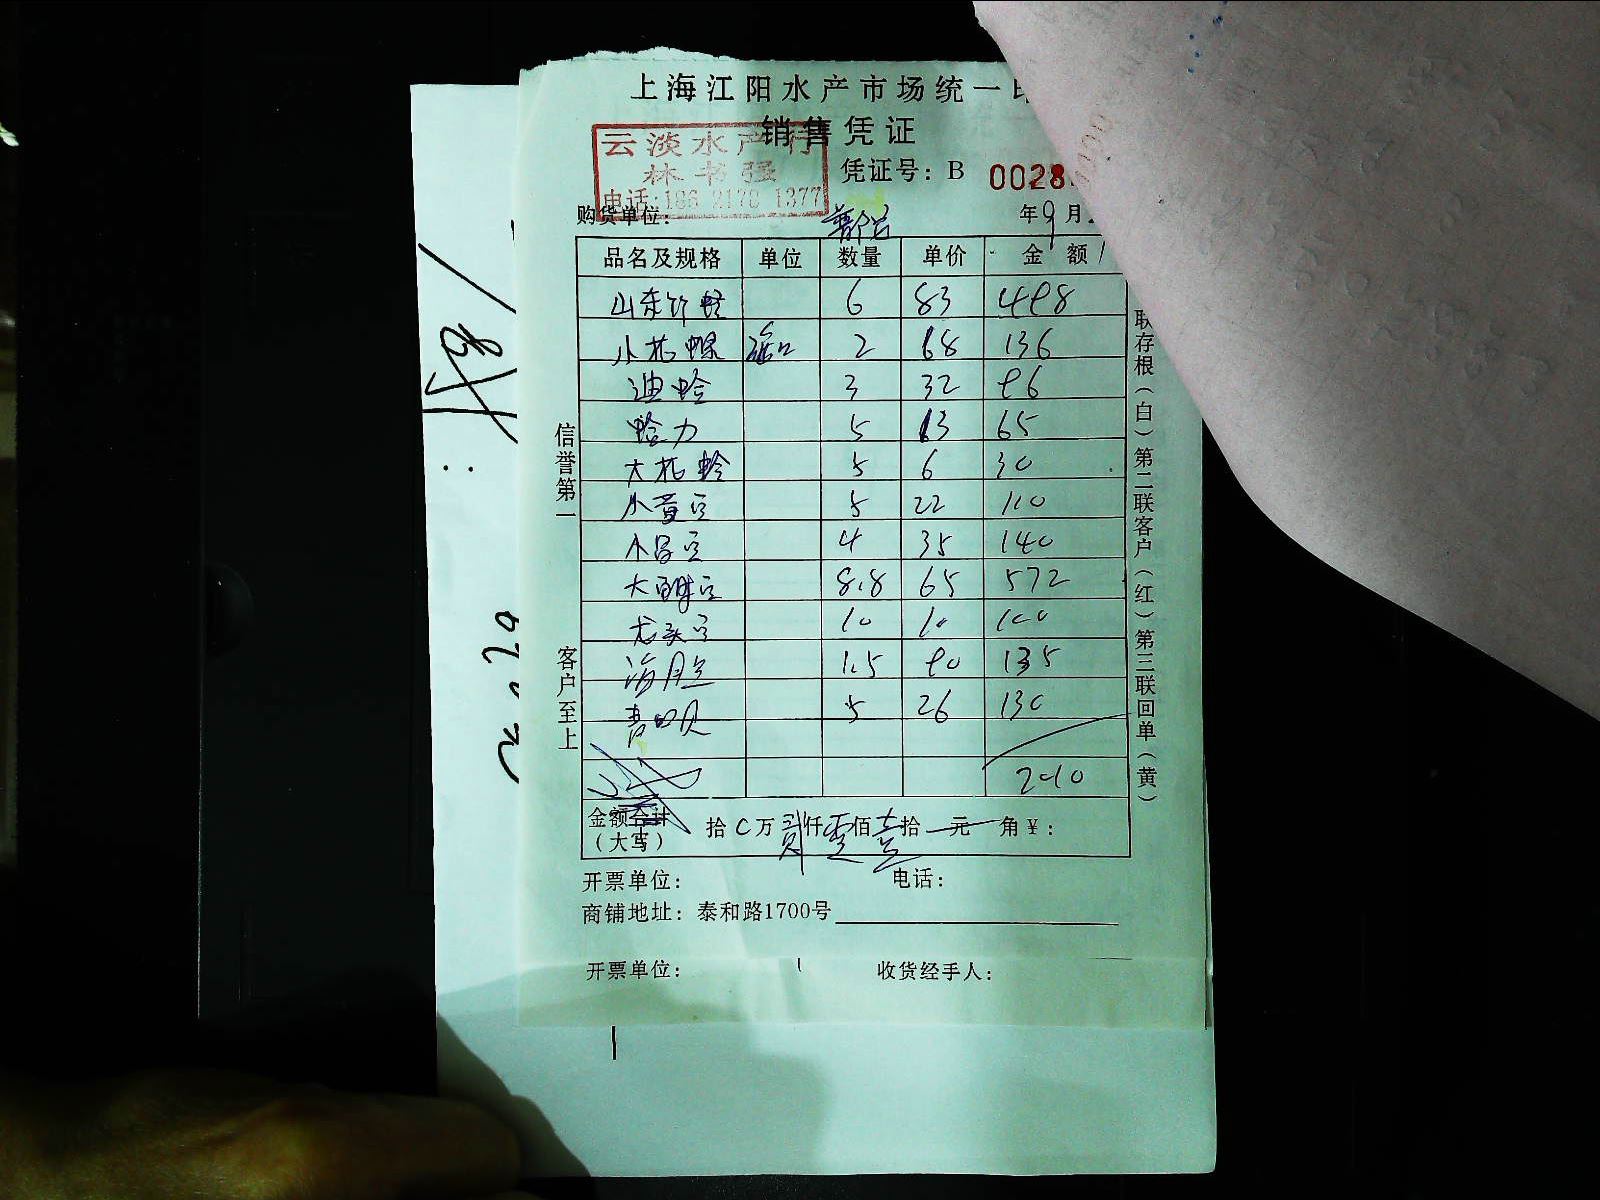 上海江阳水产市场统一
销售凭证
云淡水产行
林书强
电话:186 2170 1377
凭证号: B 0028
购货单位:
年9月
品名及规格 单位 数量 单价 金额
山东竹蛏 6 83 498
小花螺 2 68 136
迪蛤 3 32 96
蛤力 5 13 65
大花蛤 5 6 30
小黄豆 5 22 110
小昌豆 4 35 140
大豆 8.8 65 572
龙头豆 10 10 100
海胆 1.5 90 135
青口贝 5 26 130
2010
金额合计
(大写) 拾 0 万 贰 仟 零 佰 壹 拾 元 角 ¥:
开票单位: 电话:
商铺地址: 泰和路1700号
开票单位: 收货经手人:
信誉第一
客户至上
联存根(白)第二联客户(红)第三联回单(黄)